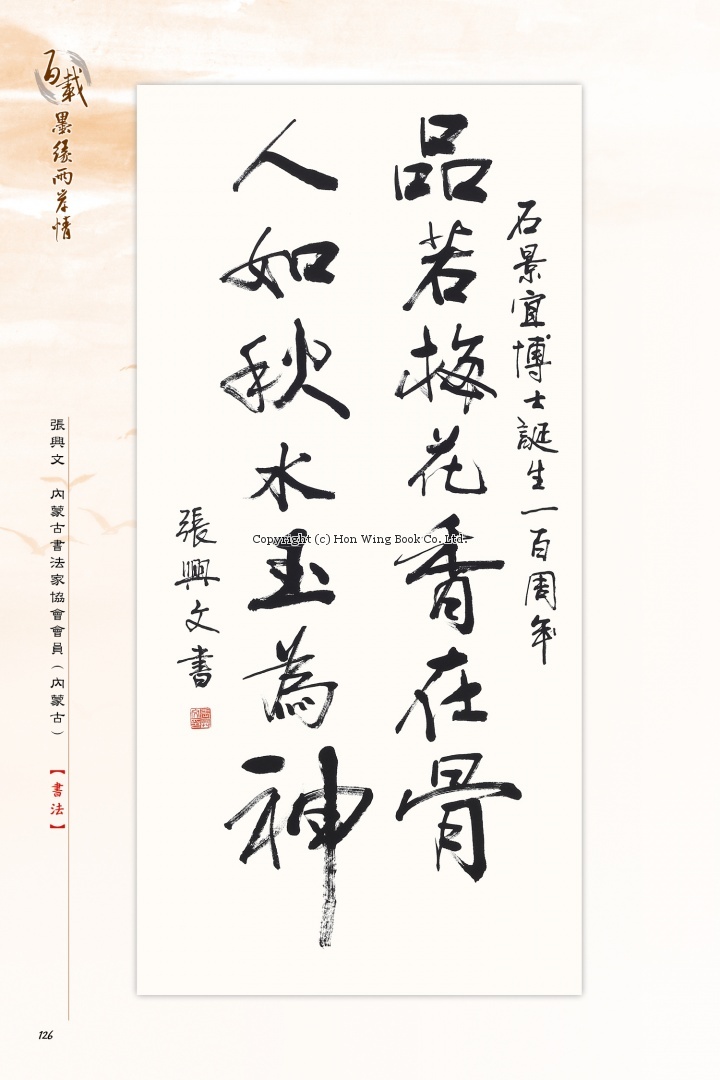 石景宜博士誕生一百周年
品若梅花香在骨
人如秋水玉為神
張興文書
Copyright (c) Hon Wing Book Co. Ltd.
百載
墨緣兩岸情
張興文 內蒙古書法家協會會員（內蒙古）
【書法】
126